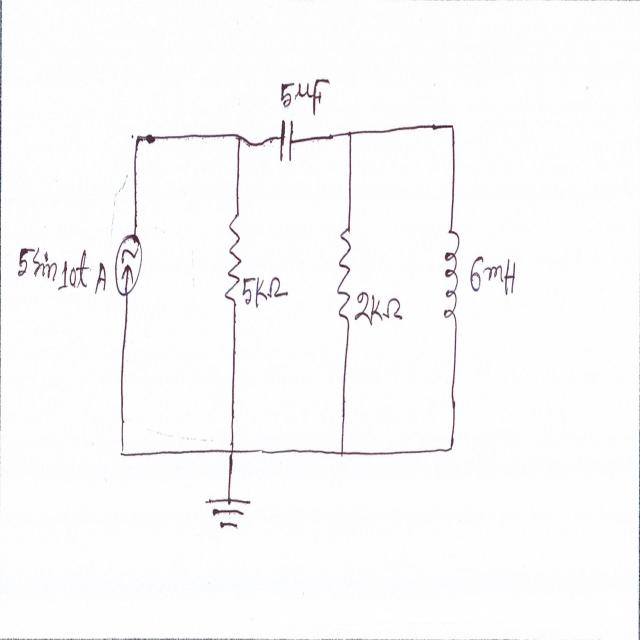 5μF
5sin10t A
5KΩ
2KΩ
6mH